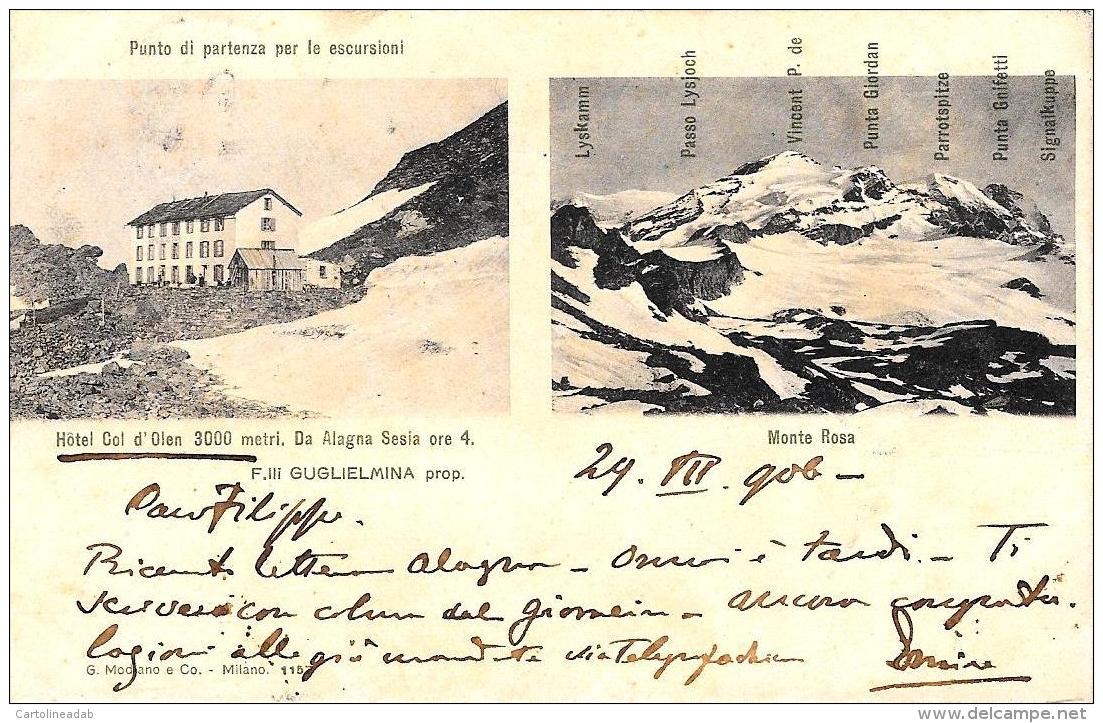 Punto di partenza per le escursioni
Lyskamm
Passo Lysjoch
Vincent P. de
Punta Giordan
Parrotspitze
Punta Gnifetti
Signalkuppe
Hôtel Col d'Olen 3000 metri. Da Alagna Sesia ore 4.
Monte Rosa
F.lli GUGLIELMINA prop.
29. VII. 906 -
Caro Filippo.
Ricevuto lettera Alagna - Ormai è tardi. - Ti
con dal - ancora congratu.
lazioni alle già mandate via
G. Modiano e Co. - Milano. 1157
Cartolineadab
delcampe.net